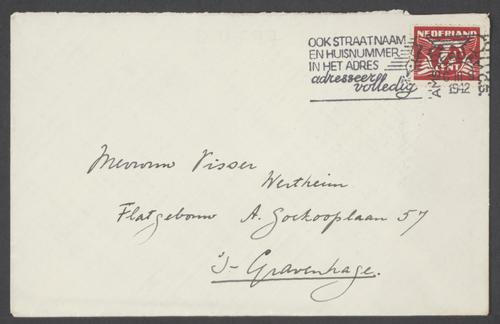 OOK STRAATNAAM
EN HUISNUMMER
IN HET ADRES
adresseer
volledig
NEDERLAND
7½
CENT
1942
Mevrouw Visser
Wertheim
Flatgebouw A. Goekooplaan 57
's-Gravenhage.